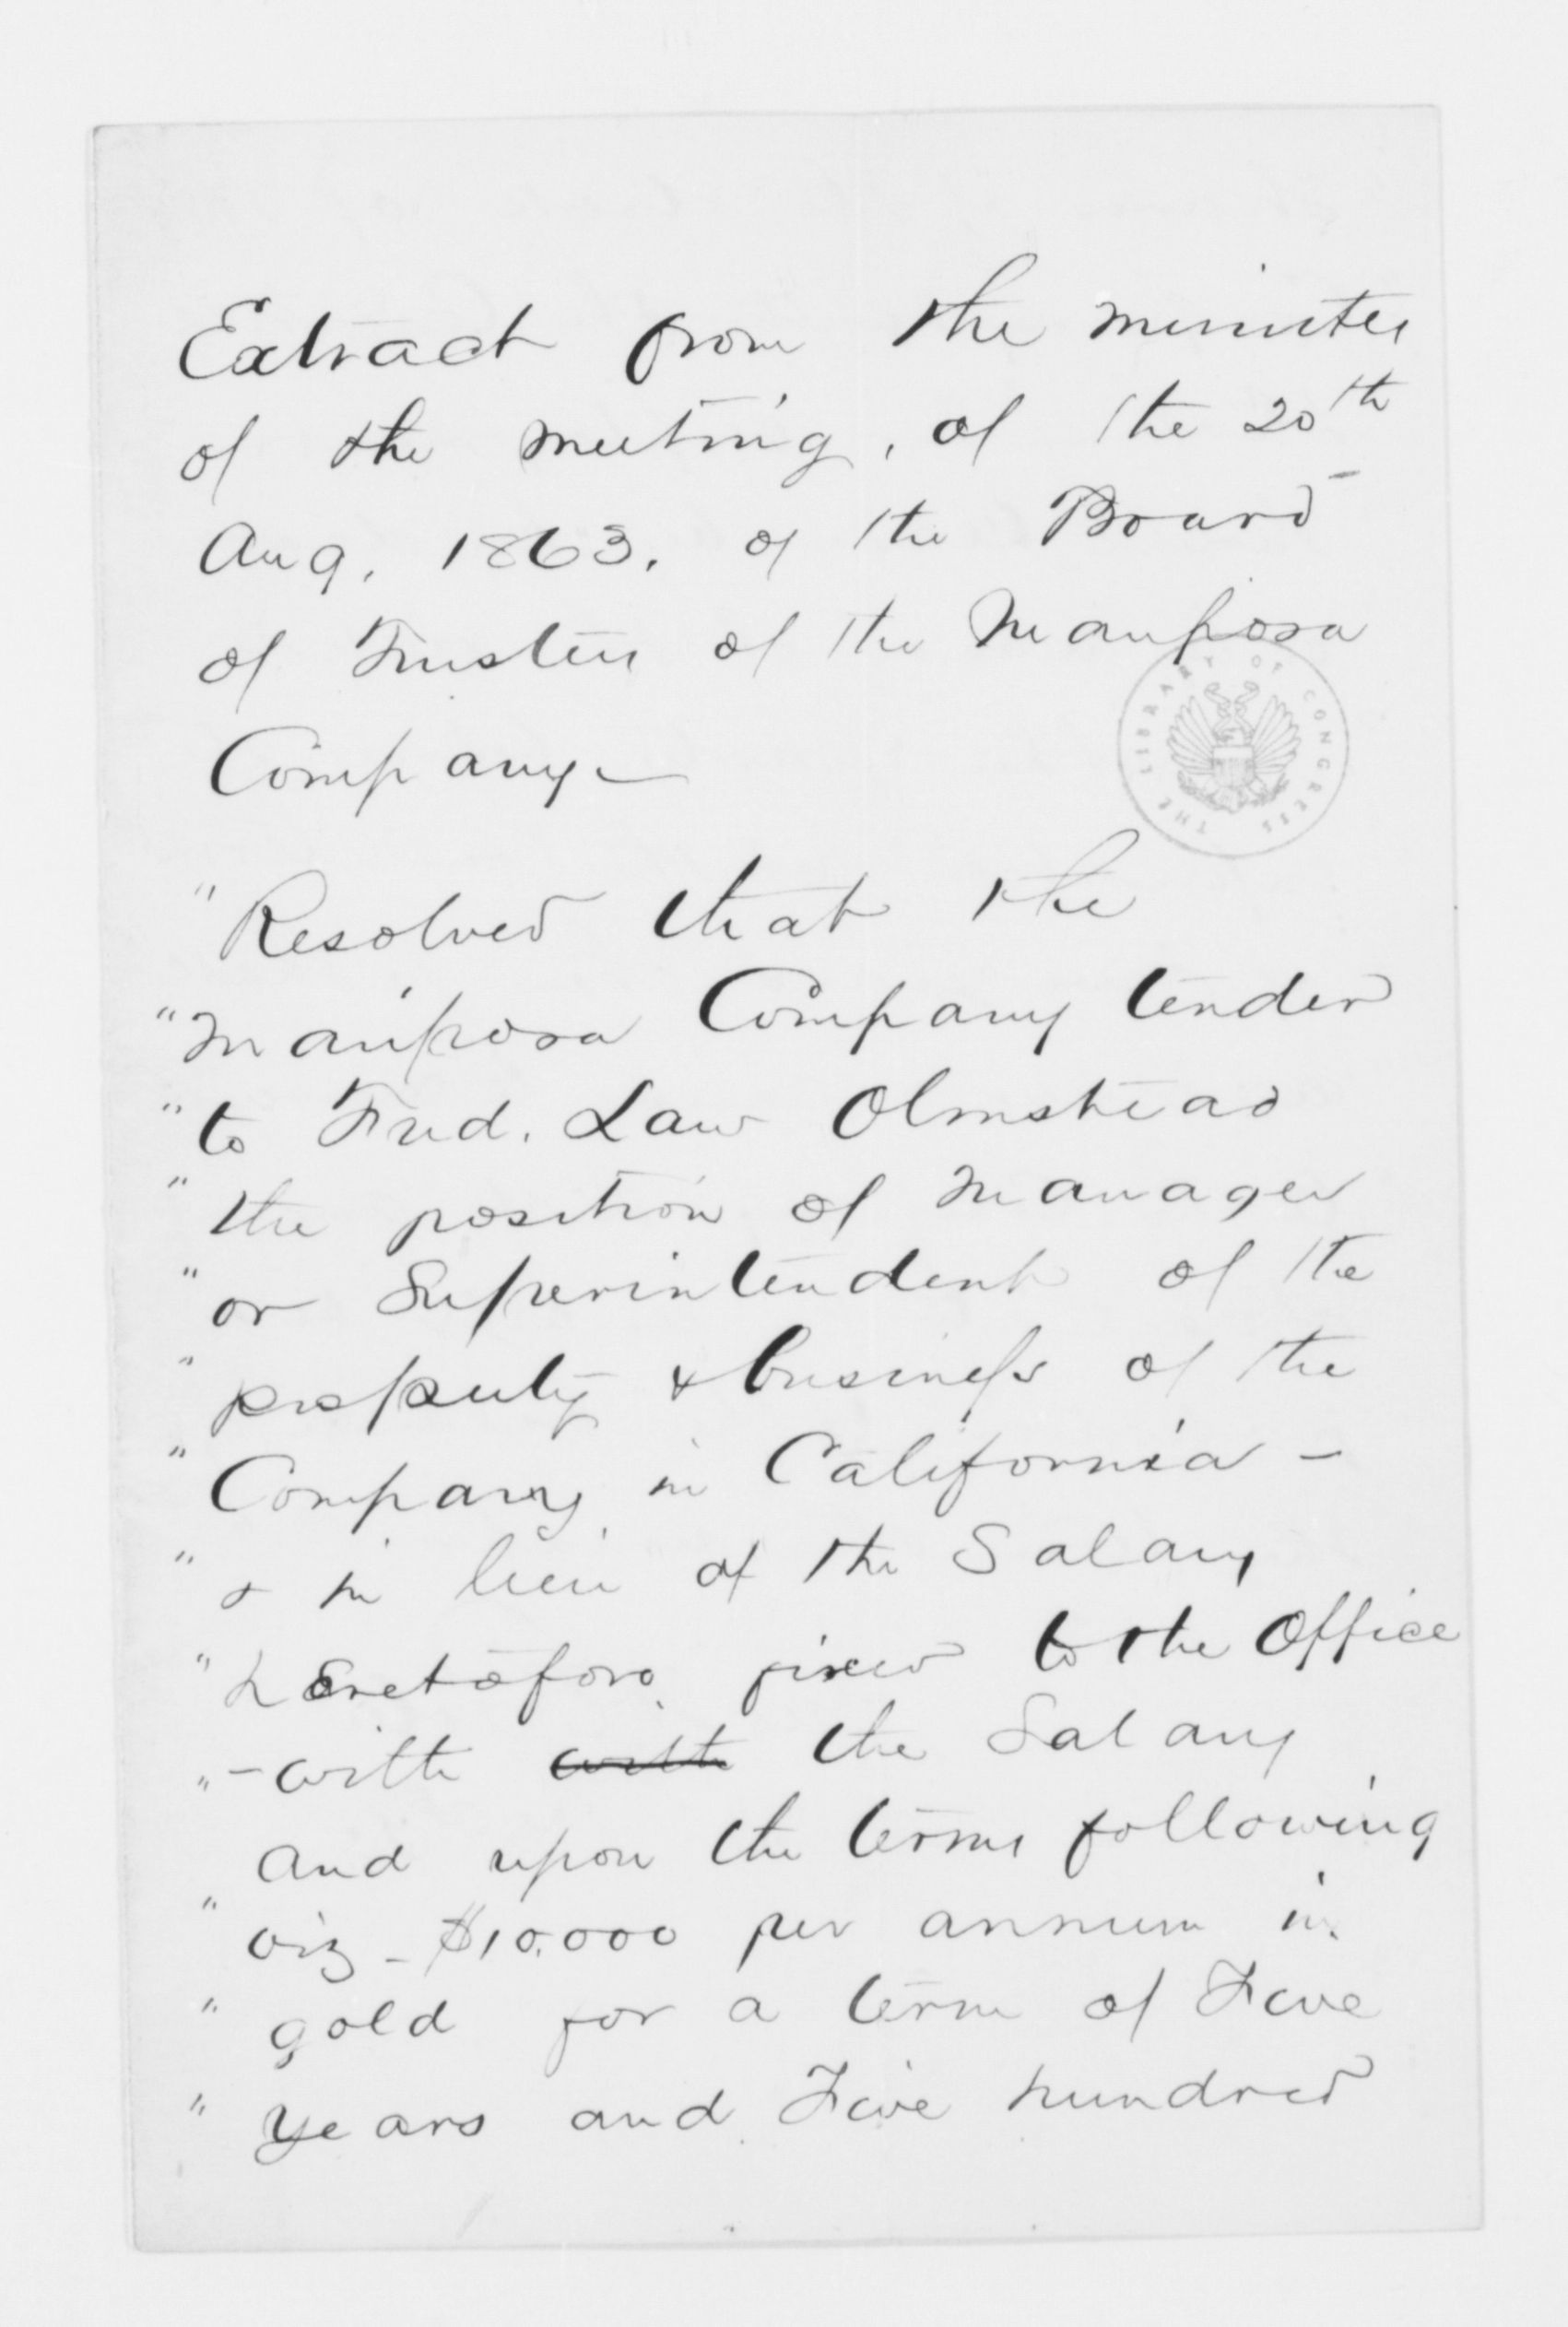 Extract from the minutes
of the meeting, of the 20th
Aug. 1863. of the Board
of Trustees of the Mariposa
Company—
THE LIBRARY OF CONGRESS
"Resolved that the
"Mariposa Company tender
"to Fred. Law Olmstead
"the position of Manager
"or Superintendent of the
"property & business of the
"Company in California -
"& in lieu of the Salary
"heretofore fixed to the Office
"-with with the Salary
and upon the terms following
"viz - $10.000 per annum in
"gold for a term of Five
"years and Five hundred